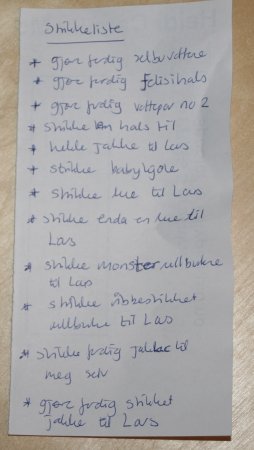 Strikkeliste
* gjøre ferdig selbuvottene
* gjøre ferdig Felisihals
* gjøre ferdig vottepar no 2
* strikke en hals til
* hekle jakke til Lars
* strikke babykjole
* strikke lue til Lars
* strikke enda en lue til
Lars
* strikke monsterullbuksene
til Lars
* strikke ribbestrikket
ullbukse til Lars
* strikke ferdig jakke til
meg selv
* gjøre ferdig strikket
jakke til Lars